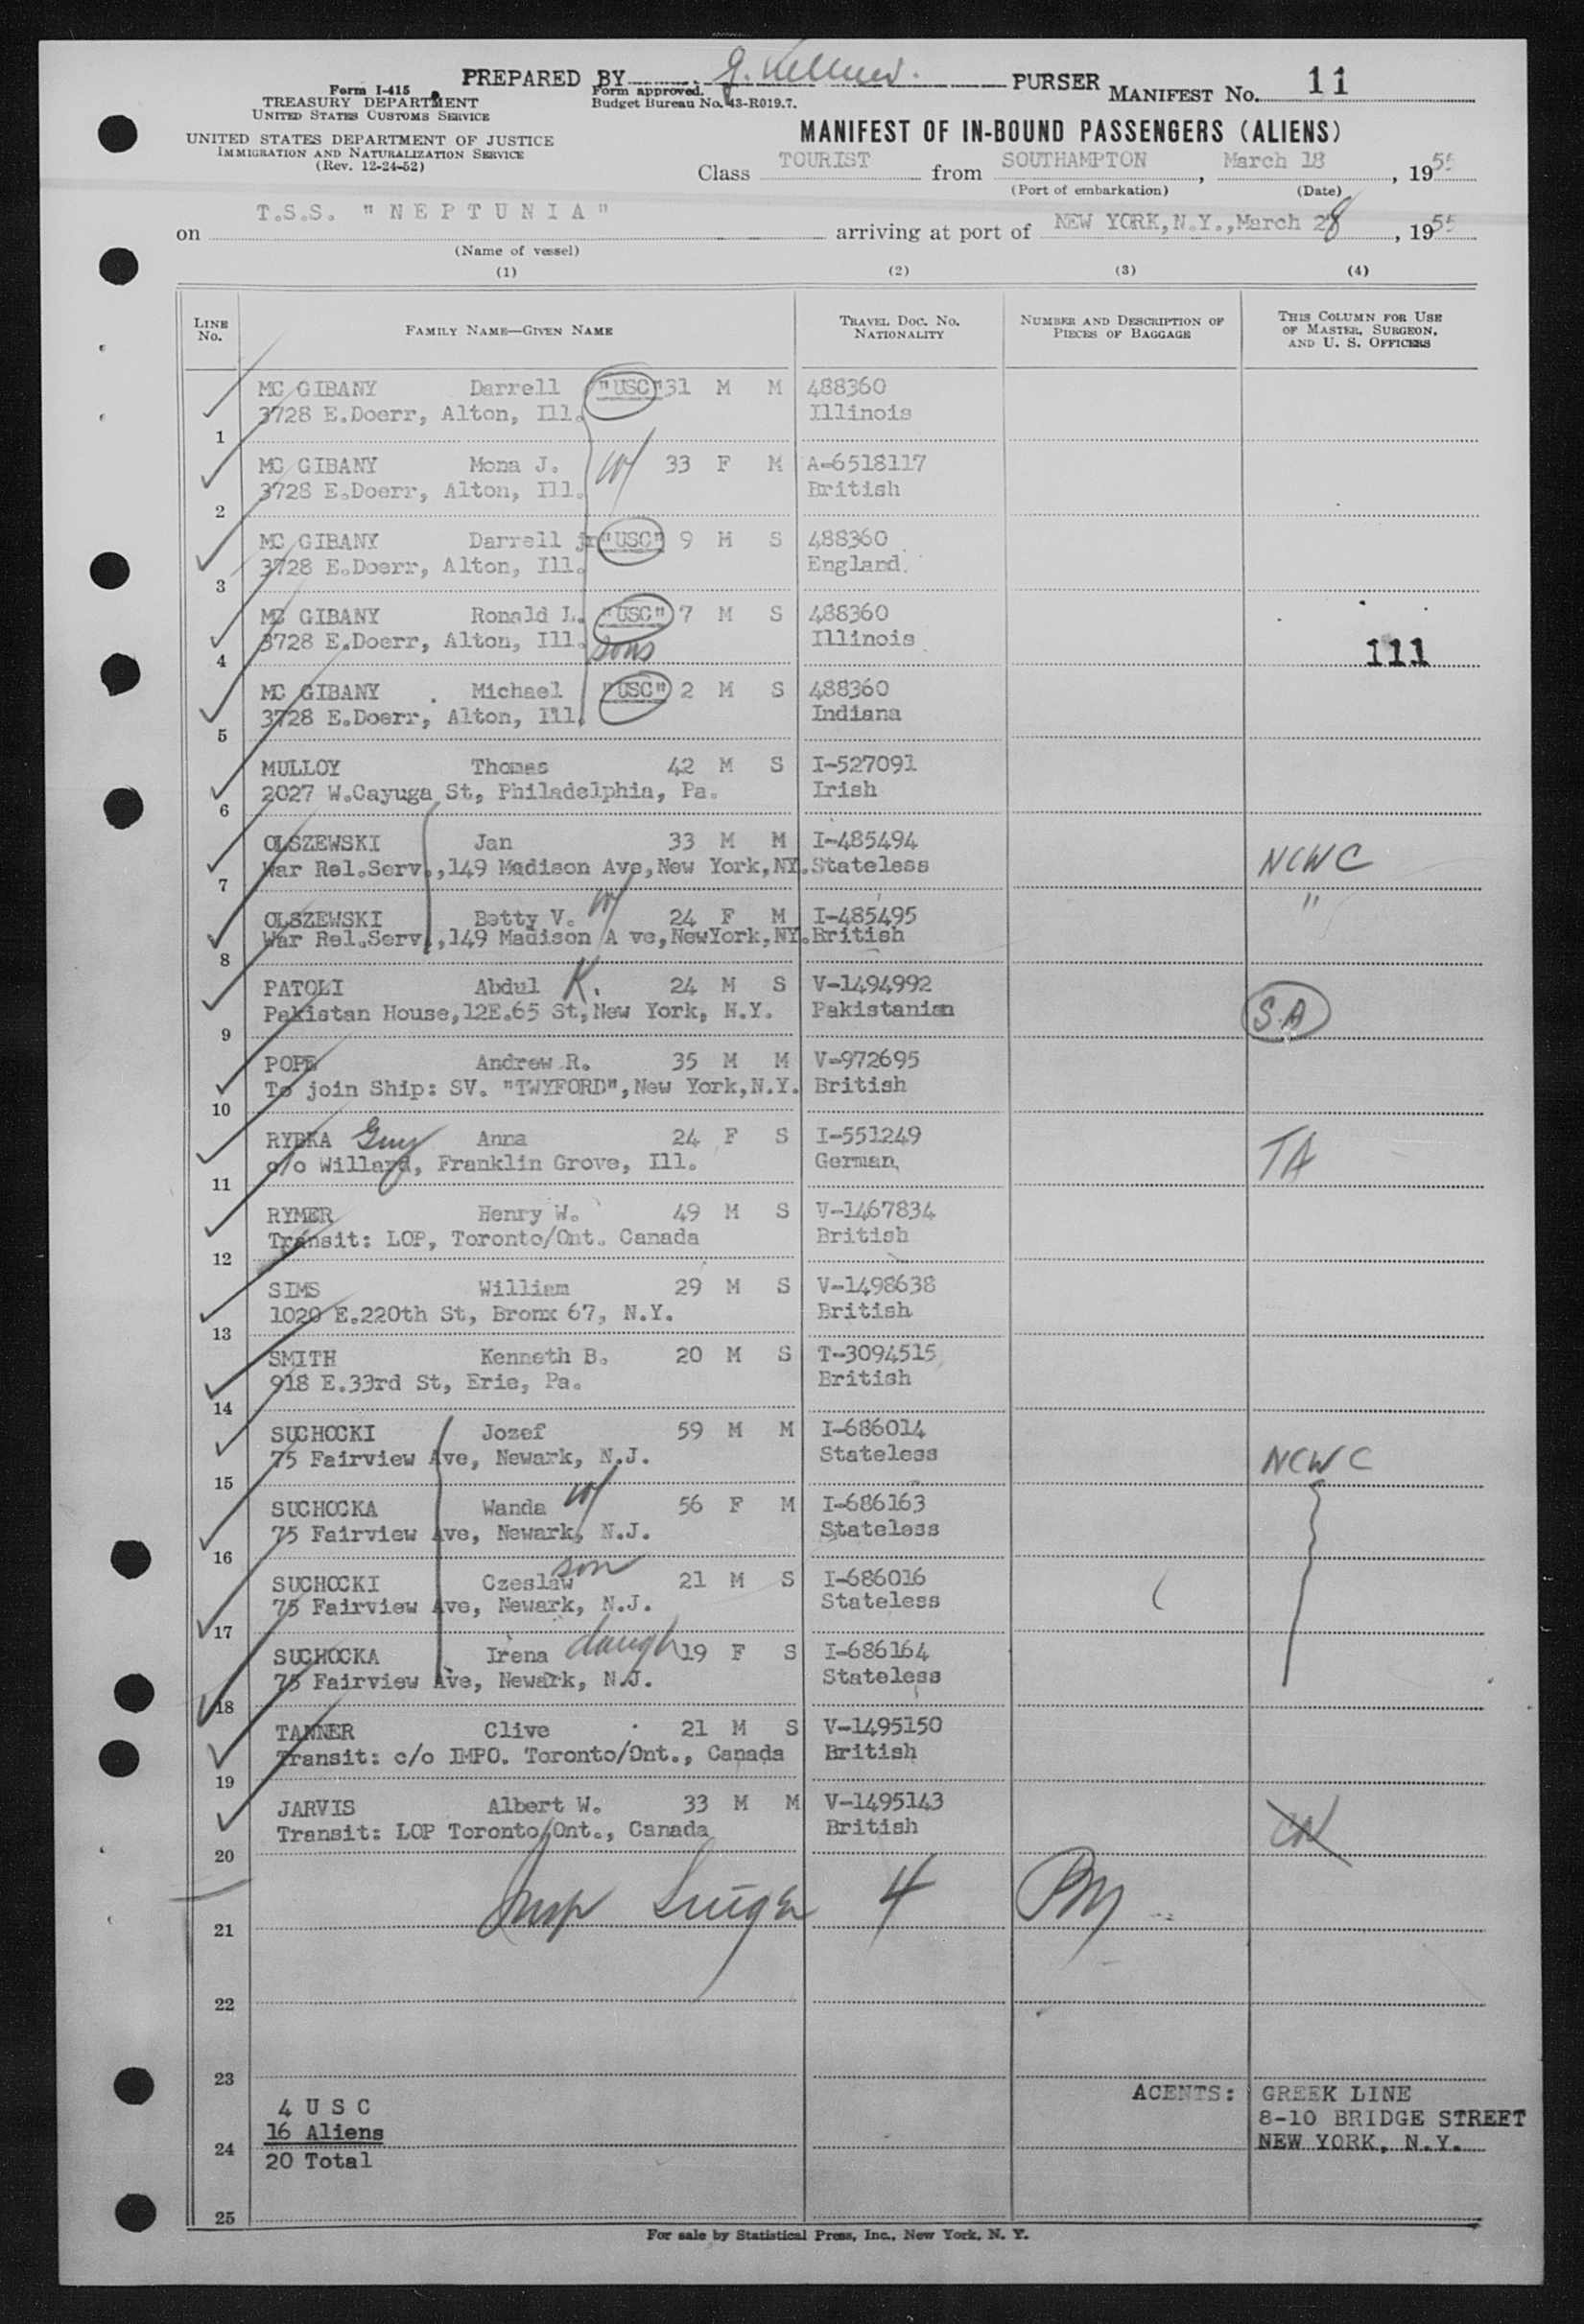 PREPARED BY J. Kellner. PURSER MANIFEST No. 11
Form I-415
TREASURY DEPARTMENT
UNITED STATES CUSTOMS SERVICE
Form approved.
Budget Bureau No. 43-R019.7.
UNITED STATES DEPARTMENT OF JUSTICE
IMMIGRATION AND NATURALIZATION SERVICE
(Rev. 12-24-52)
MANIFEST OF IN-BOUND PASSENGERS (ALIENS)
Class TOURIST from SOUTHAMPTON, March 18, 1955
(Port of embarkation) (Date)
on T.S.S. "NEPTUNIA" arriving at port of NEW YORK, N.Y., March 28, 1955
(Name of vessel)
(1) (2) (3) (4)
LINE NO. FAMILY NAME—GIVEN NAME TRAVEL DOC. NO. NATIONALITY NUMBER AND DESCRIPTION OF PIECES OF BAGGAGE THIS COLUMN FOR USE OF MASTER, SURGEON, AND U. S. OFFICERS
MC GIBANY Darrell "USC" 31 M M 488360
1 3728 E.Doerr, Alton, Ill. Illinois
MC GIBANY Mona J. W 33 F M A-6518117
2 3728 E.Doerr, Alton, Ill. British
MC GIBANY Darrell jr "USC" 9 M S 488360
3 3728 E.Doerr, Alton, Ill. England
MC GIBANY Ronald L. "USC" 7 M S 488360
4 3728 E.Doerr, Alton, Ill. sons Illinois 111
MC GIBANY Michael "USC" 2 M S 488360
5 3728 E.Doerr, Alton, Ill. Indiana
MULLOY Thomas 42 M S I-527091
6 2027 W.Cayuga St, Philadelphia, Pa. Irish
OLSZEWSKI Jan 33 M M I-485494
7 War Rel.Serv.,149 Madison Ave,New York,NY. Stateless NCWC
OLSZEWSKI Betty V. W 24 F M I-485495 "
8 War Rel.Serv.,149 Madison A ve,NewYork,NY. British
PATOLI Abdul K. 24 M S V-1494992
9 Pakistan House,12E.65 St,New York, N.Y. Pakistanian S.A
POPE Andrew R. 35 M M V-972695
10 To join Ship: SV. "TWYFORD",New York,N.Y. British
RYBKA Guy Anna 24 F S I-551249
11 c/o Willard, Franklin Grove, Ill. German TA
RYMER Henry W. 49 M S V-1467834
12 Transit: LOP, Toronto/Ont. Canada British
SIMS William 29 M S V-1498638
13 1020 E.220th St, Bronx 67, N.Y. British
SMITH Kenneth B. 20 M S T-3094515
14 918 E.33rd St, Erie, Pa. British
SUCHOCKI Jozef 59 M M I-686014
15 75 Fairview Ave, Newark, N.J. Stateless NCWC
SUCHOCKA Wanda W 56 F M I-686163
16 75 Fairview Ave, Newark, N.J. Stateless
SUCHOCKI Czeslaw son 21 M S I-686016
17 75 Fairview Ave, Newark, N.J. Stateless
SUCHOCKA Irena daugh 19 F S I-686164
18 75 Fairview Ave, Newark, N.J. Stateless
TANNER Clive 21 M S V-1495150
19 Transit: c/o IMPO. Toronto/Ont., Canada British
JARVIS Albert W. 33 M M V-1495143
20 Transit: LOP Toronto/Ont., Canada British
21 Insp 4
22
23
4 U S C AGENTS: GREEK LINE
16 Aliens 8-10 BRIDGE STREET
24 NEW YORK, N.Y.
20 Total
25
For sale by Statistical Press, Inc., New York, N. Y.